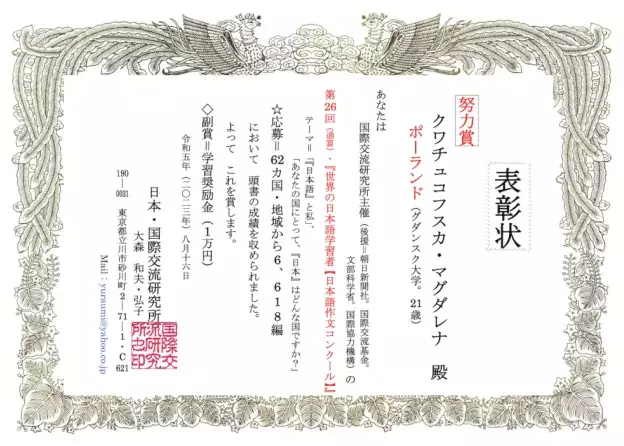 表彰状
努力賞
クワチュコフスカ・マグダレナ 殿
ポーランド(グダンスク大学。21歳)
あなたは
国際交流研究所主催(後援=朝日新聞社。国際交流基金。文部科学省。国際協力機構)の
第26回(通算)・『世界の日本語学習者【日本語作文コンクール】』
テーマ=「『日本語』と私」、
「あなたの国にとって、『日本』はどんな国ですか?」
☆応募=62カ国・地域から6、618編
において 頭書の成績を収められました。
よって これを賞します。
◇副賞=学習奨励金(1万円)
令和五年(二〇二三年)八月十六日
日本・国際交流研究所
大森 和夫・弘子
190―0021 東京都立川市砂川町2―71―1・C621
Mail:yuraumi@yahoo.co.jp
国際交
流研究
所之印